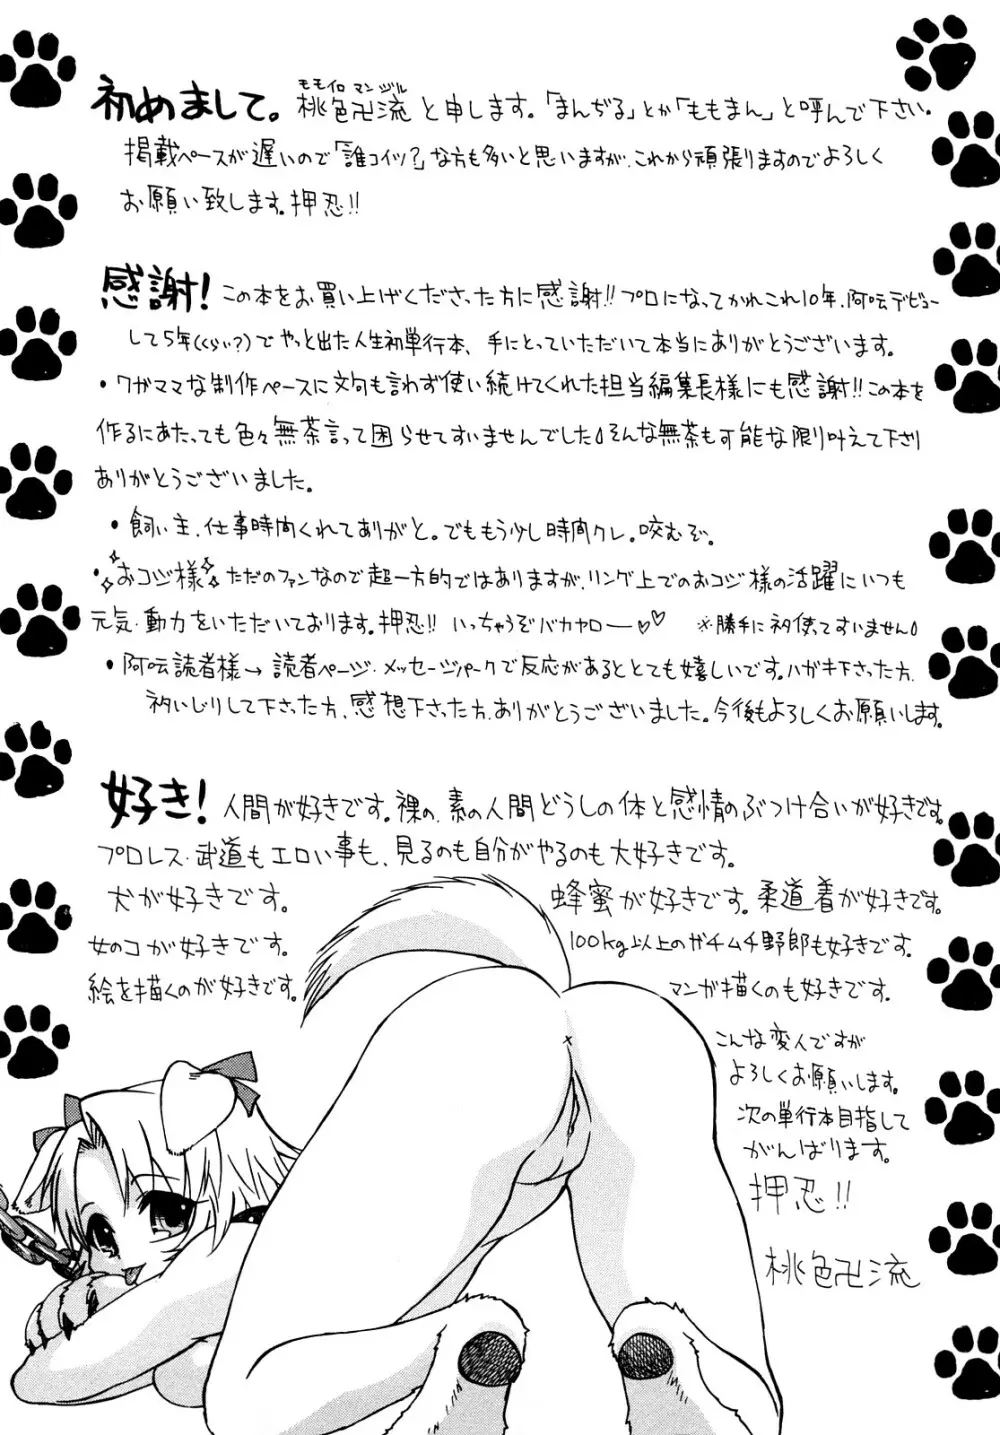 初めまして。桃色卍流と申します。「まんぢる」とか「ももまん」と呼んで下さい。
モモイロ マンヂル
掲載ペースが遅いので「誰コイツ?」な方も多いと思いますが、これから頑張りますのでよろしく
お願い致します。押忍!!
感謝! この本をお買い上げくださった方に感謝!!プロになってかれこれ10年、阿吽デビュー
して5年(くらい?)でやっと出た人生初単行本、手にとっていただいて本当にありがとうございます。
・ワガママな制作ペースに文句も言わず使い続けてくれた担当編集長様にも感謝!!この本を
作るにあたっても色々無茶言って困らせてすいませんでした。そんな無茶も可能な限り叶えて下さり
ありがとうございました。
・飼い主、仕事時間くれてありがと。でももう少し時間クレ。咬むぞ。
・おコジ様 ただのファンなので超一方的ではありますが、リング上でのおコジ様の活躍にいつも
元気・動力をいただいております。押忍!! いっちゃうぞバカヤロー♡♡ ※勝手にネタ使ってすいません
・阿吽読者様→読者ページ・メッセージパークで反応があるととても嬉しいです。ハガキ下さった方、
ネタいじりして下さった方、感想下さった方、ありがとうございました。今後もよろしくお願いします。
好き! 人間が好きです。裸の、素の人間どうしの体と感情のぶつけ合いが好きです。
プロレス・武道もエロい事も、見るのも自分がやるのも大好きです。
犬が好きです。
蜂蜜が好きです。柔道着が好きです。
女のコが好きです。
100kg以上のガチムチ野郎も好きです。
絵を描くのが好きです。
マンガ描くのも好きです。
こんな変人ですが
よろしくお願いします。
次の単行本目指して
がんばります。
押忍!!
桃色卍流